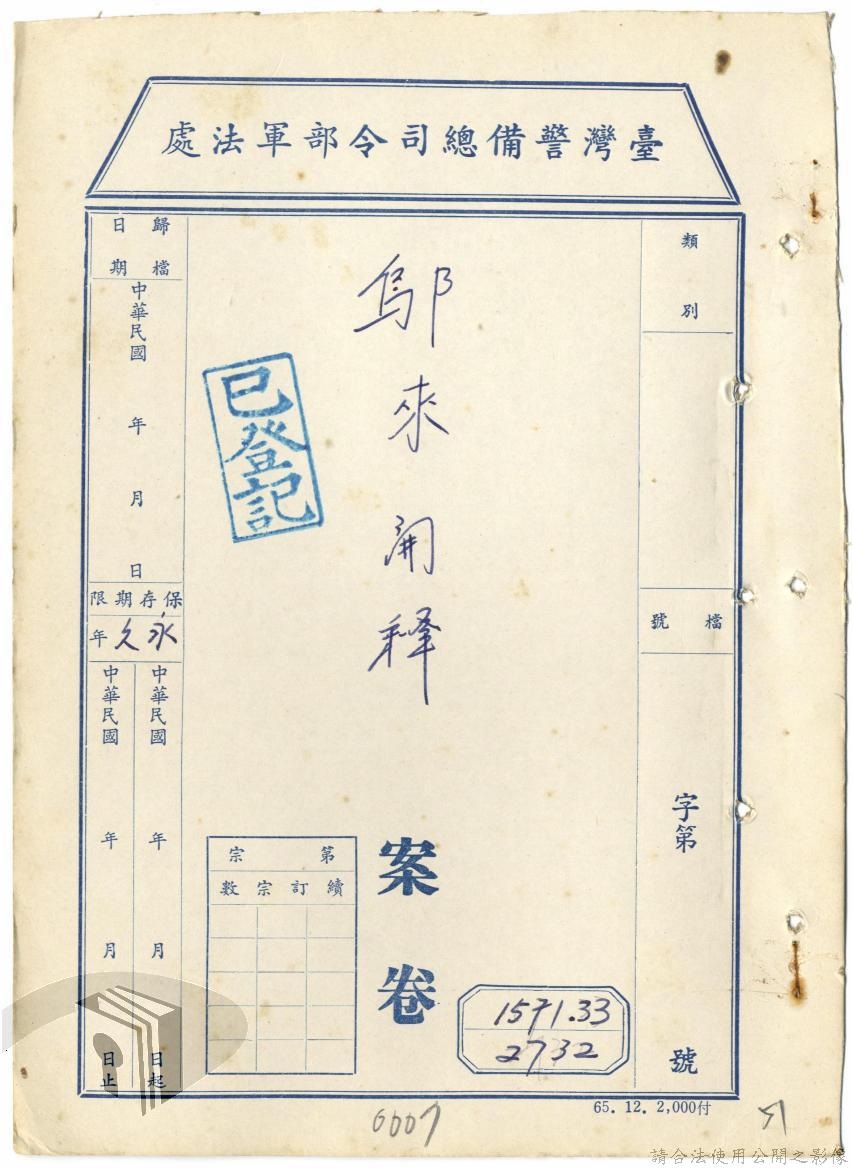 臺灣警備總司令部軍法處
類別
檔號
字第
號
鄔來開释
案卷
已登記
歸檔日期
中華民國
年
月
日
保存期限
永久年
中華民國
年
月
日起
中華民國
年
月
日止
第宗
續訂宗數
1571.33
2732
65. 12. 2,000付
0007
請合法使用公開之影像